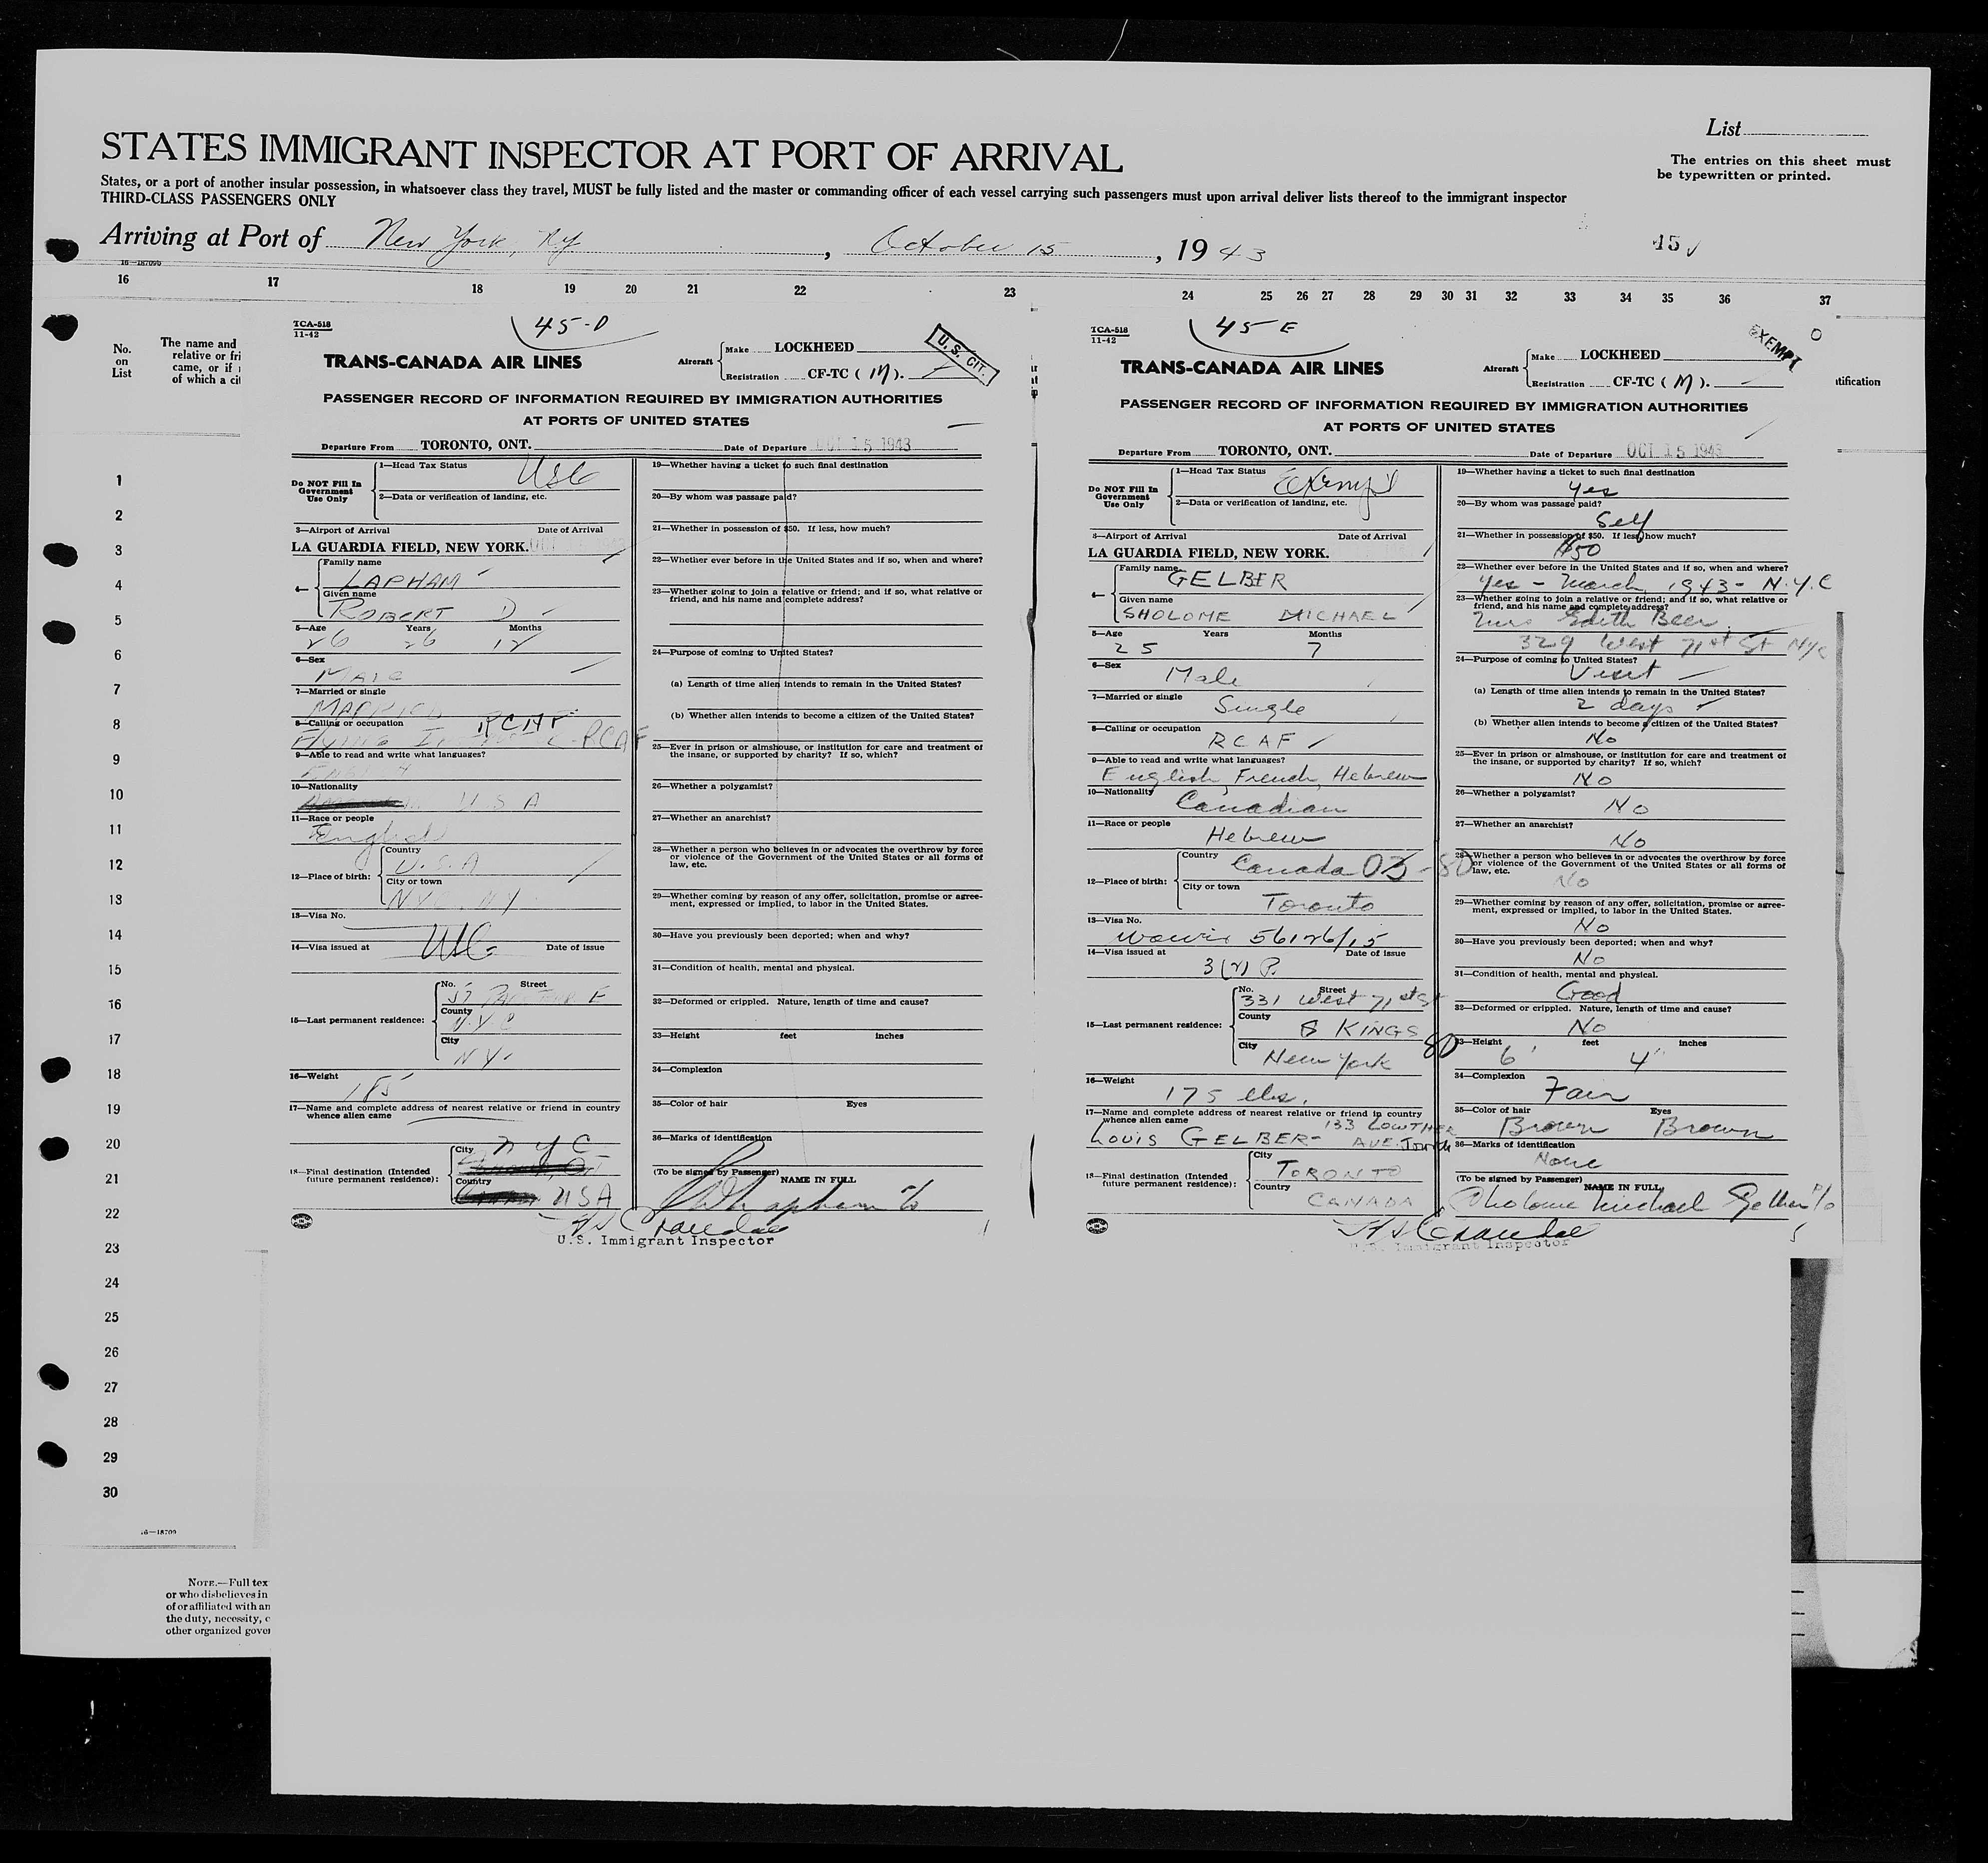 List
STATES IMMIGRANT INSPECTOR AT PORT OF ARRIVAL
The entries on this sheet must
be typewritten or printed.
States, or a port of another insular possession, in whatsoever class they travel, MUST be fully listed and the master or commanding officer of each vessel carrying such passengers must upon arrival deliver lists thereof to the immigrant inspector
THIRD-CLASS PASSENGERS ONLY
Arriving at Port of New York, NY, October 15, 1943
45
16—18709b
16 17 18 19 20 21 22 23 24 25 26 27 28 29 30 31 32 33 34 35 36 37
No.
on
List
The name and
relative or fri
came, or if
of which a cit
1
2
3
4
5
6
7
8
9
10
11
12
13
14
15
16
17
18
19
20
21
22
23
24
25
26
27
28
29
30
16—18709
NOTE.—Full tex
or who disbelieves in
of or affiliated with an
the duty, necessity, c
other organized gover
TCA-518
11-42
45-D
TRANS-CANADA AIR LINES
Aircraft
Make LOCKHEED
Registration CF-TC (M).
U. S. CIT.
PASSENGER RECORD OF INFORMATION REQUIRED BY IMMIGRATION AUTHORITIES
AT PORTS OF UNITED STATES
Departure From TORONTO, ONT. Date of Departure OCT 15 1943
Do NOT Fill In
Government
Use Only
1—Head Tax Status USC
2—Data or verification of landing, etc.
3—Airport of Arrival Date of Arrival
LA GUARDIA FIELD, NEW YORK.
4— Family name
LAPHAM
Given name
ROBERT D
5—Age Years Months
26 26 12
6—Sex
MALE
7—Married or single
MARRIED
8—Calling or occupation RCAF
FLYING RCAF
9—Able to read and write what languages?
10—Nationality
U S A
11—Race or people
English
12—Place of birth:
Country
U.S.A
City or town
NYC. NY
13—Visa No.
14—Visa issued at Date of issue
15—Last permanent residence:
No. Street
E
County
N.Y.C
City
N Y.
16—Weight
185
17—Name and complete address of nearest relative or friend in country
whence alien came
18—Final destination (Intended
future permanent residence):
City N Y C
Country USA
19—Whether having a ticket to such final destination
20—By whom was passage paid?
21—Whether in possession of $50. If less, how much?
22—Whether ever before in the United States and if so, when and where?
23—Whether going to join a relative or friend; and if so, what relative or
friend, and his name and complete address?
24—Purpose of coming to United States?
(a) Length of time alien intends to remain in the United States?
(b) Whether alien intends to become a citizen of the United States?
25—Ever in prison or almshouse, or institution for care and treatment of
the insane, or supported by charity? If so, which?
26—Whether a polygamist?
27—Whether an anarchist?
28—Whether a person who believes in or advocates the overthrow by force
or violence of the Government of the United States or all forms of
law, etc.
29—Whether coming by reason of any offer, solicitation, promise or agree-
ment, expressed or implied, to labor in the United States.
30—Have you previously been deported; when and why?
31—Condition of health, mental and physical.
32—Deformed or crippled. Nature, length of time and cause?
33—Height feet inches
34—Complexion
35—Color of hair Eyes
36—Marks of identification
(To be signed by Passenger) NAME IN FULL
U.S. Immigrant Inspector
TCA-518
11-42
45 E
TRANS-CANADA AIR LINES
Aircraft
Make LOCKHEED
Registration CF-TC (M).
EXEMPT
ntification
PASSENGER RECORD OF INFORMATION REQUIRED BY IMMIGRATION AUTHORITIES
AT PORTS OF UNITED STATES
Departure From TORONTO, ONT. Date of Departure OCT 15 1943
Do NOT Fill In
Government
Use Only
1—Head Tax Status Exempt
2—Data or verification of landing, etc.
3—Airport of Arrival Date of Arrival
LA GUARDIA FIELD, NEW YORK.
4— Family name
GELBER
Given name
SHOLOME MICHAEL
5—Age Years Months
25 7
6—Sex
Male
7—Married or single
Single
8—Calling or occupation
RCAF
9—Able to read and write what languages?
English, French, Hebrew
10—Nationality
Canadian
11—Race or people
Hebrew
12—Place of birth:
Country
Canada
City or town
Toronto
13—Visa No.
56126/15
14—Visa issued at Date of issue
3(2) P.
15—Last permanent residence:
No. Street
331 West 71st St
County
KINGS
City
New York
16—Weight
175 lbs.
17—Name and complete address of nearest relative or friend in country
whence alien came
LOUIS GELBER - 133 LOWTHER
AVE.
18—Final destination (Intended
future permanent residence):
City
TORONTO
Country
CANADA
19—Whether having a ticket to such final destination
Yes
20—By whom was passage paid?
Self
21—Whether in possession of $50. If less, how much?
$50
22—Whether ever before in the United States and if so, when and where?
Yes - March 1943 - N.Y.C
23—Whether going to join a relative or friend; and if so, what relative or
friend, and his name and complete address?
Mrs Edith Beer
329 West 71st St NYC
24—Purpose of coming to United States?
Visit
(a) Length of time alien intends to remain in the United States?
2 days
(b) Whether alien intends to become a citizen of the United States?
No
25—Ever in prison or almshouse, or institution for care and treatment of
the insane, or supported by charity? If so, which?
No
26—Whether a polygamist?
No
27—Whether an anarchist?
No
28—Whether a person who believes in or advocates the overthrow by force
or violence of the Government of the United States or all forms of
law, etc.
No
29—Whether coming by reason of any offer, solicitation, promise or agree-
ment, expressed or implied, to labor in the United States.
No
30—Have you previously been deported; when and why?
No
31—Condition of health, mental and physical.
Good
32—Deformed or crippled. Nature, length of time and cause?
No
33—Height feet inches
6' 4"
34—Complexion
Fair
35—Color of hair Eyes
Brown Brown
36—Marks of identification
None
(To be signed by Passenger) NAME IN FULL
Sholome Michael Gelber
U.S. Immigrant Inspector